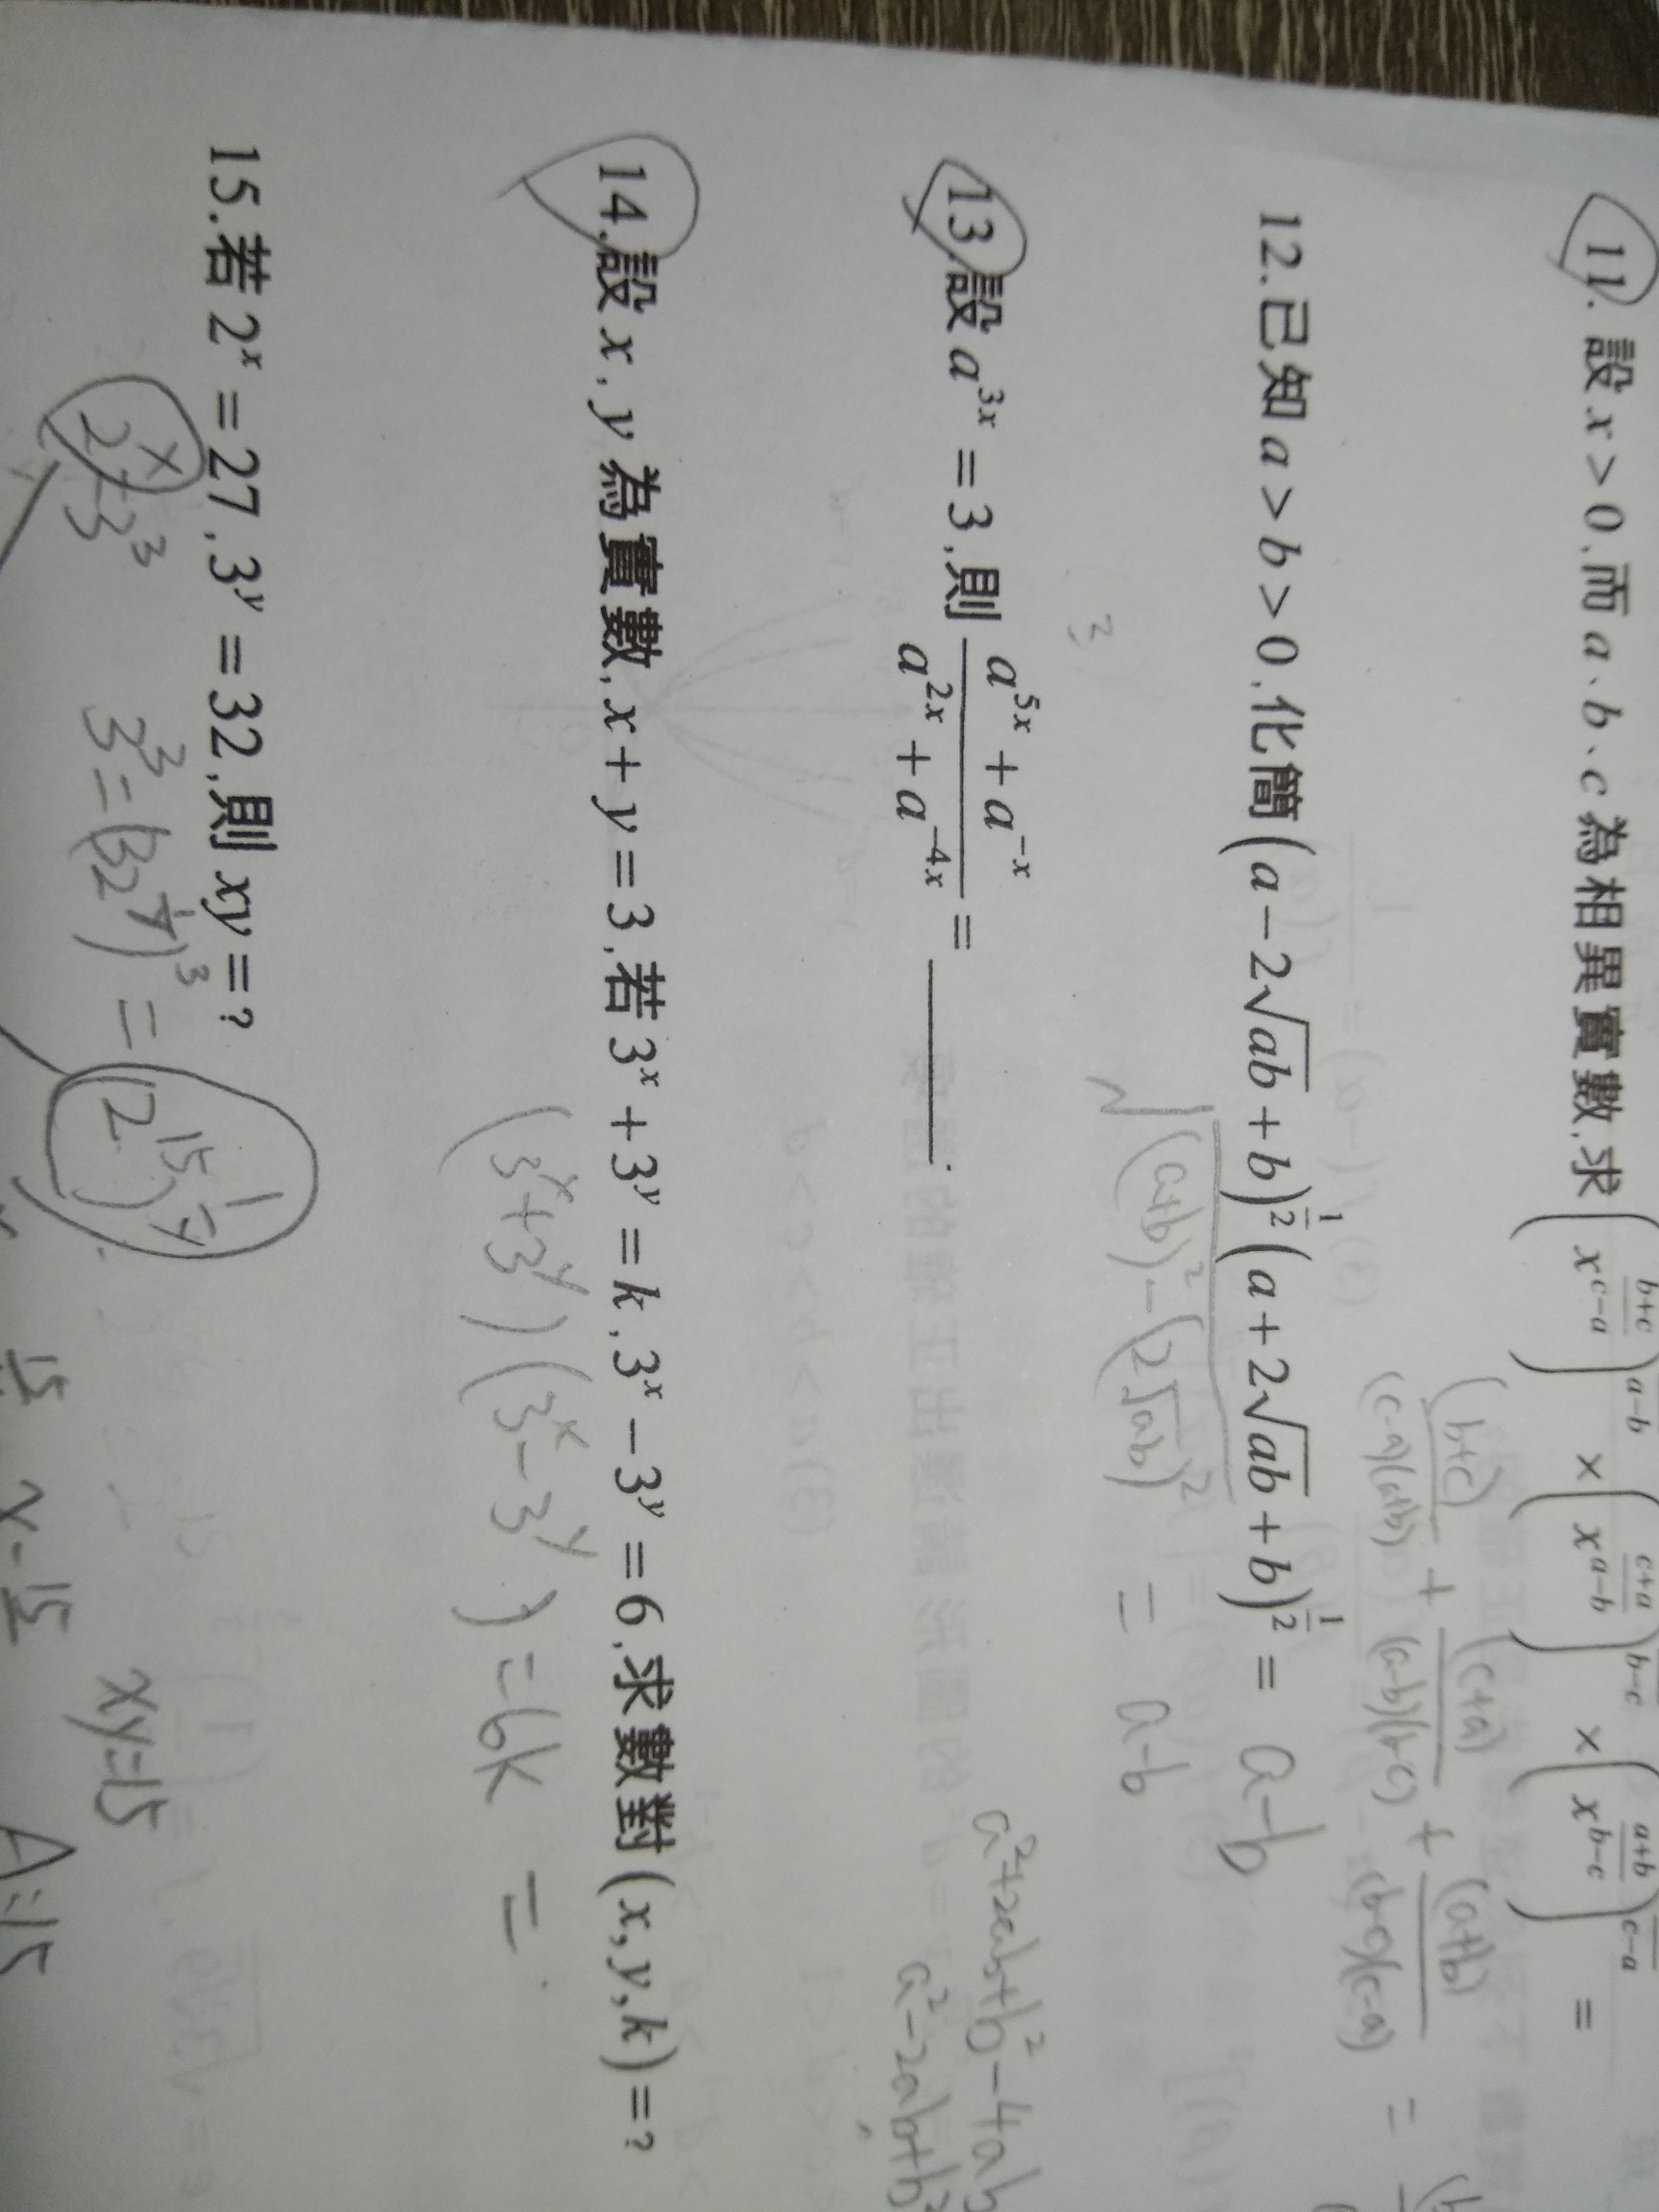 11. 設 x > 0, 而 a、b、c 為相異實數, 求 (x^{\frac{b+c}{c-a}})^{\frac{}{a-b}} × (x^{\frac{c+a}{a-b}})^{\frac{}{b-c}} × (x^{\frac{a+b}{b-c}})^{\frac{}{c-a}} =
\frac{(b+c)}{(c-a)(a+b)} + \frac{(c+a)}{(a-b)(b-c)} + \frac{(a+b)}{(b-c)(c-a)} =
12. 已知 a > b > 0, 化簡 (a - 2√ab + b)^{\frac{1}{2}} (a + 2√ab + b)^{\frac{1}{2}} = a-b
√(a+b)² - (2√ab)² = a-b
a²+2ab+b²-4ab
a²-2ab+b²
13. 設 a^{3x} = 3, 則 \frac{a^{5x} + a^{-x}}{a^{2x} + a^{-4x}} = ______.
14. 設 x, y 為實數, x + y = 3, 若 3^x + 3^y = k, 3^x - 3^y = 6, 求數對 (x, y, k) = ?
(3^x+3^y)(3^x-3^y) = 6k =
15. 若 2^x = 27, 3^y = 32, 則 xy = ?
2^x = 3³ 3³ = (32^{\frac{1}{y}})³ = (2^{15})^{\frac{1}{y}}
xy=15
x = \frac{15}{} A:15